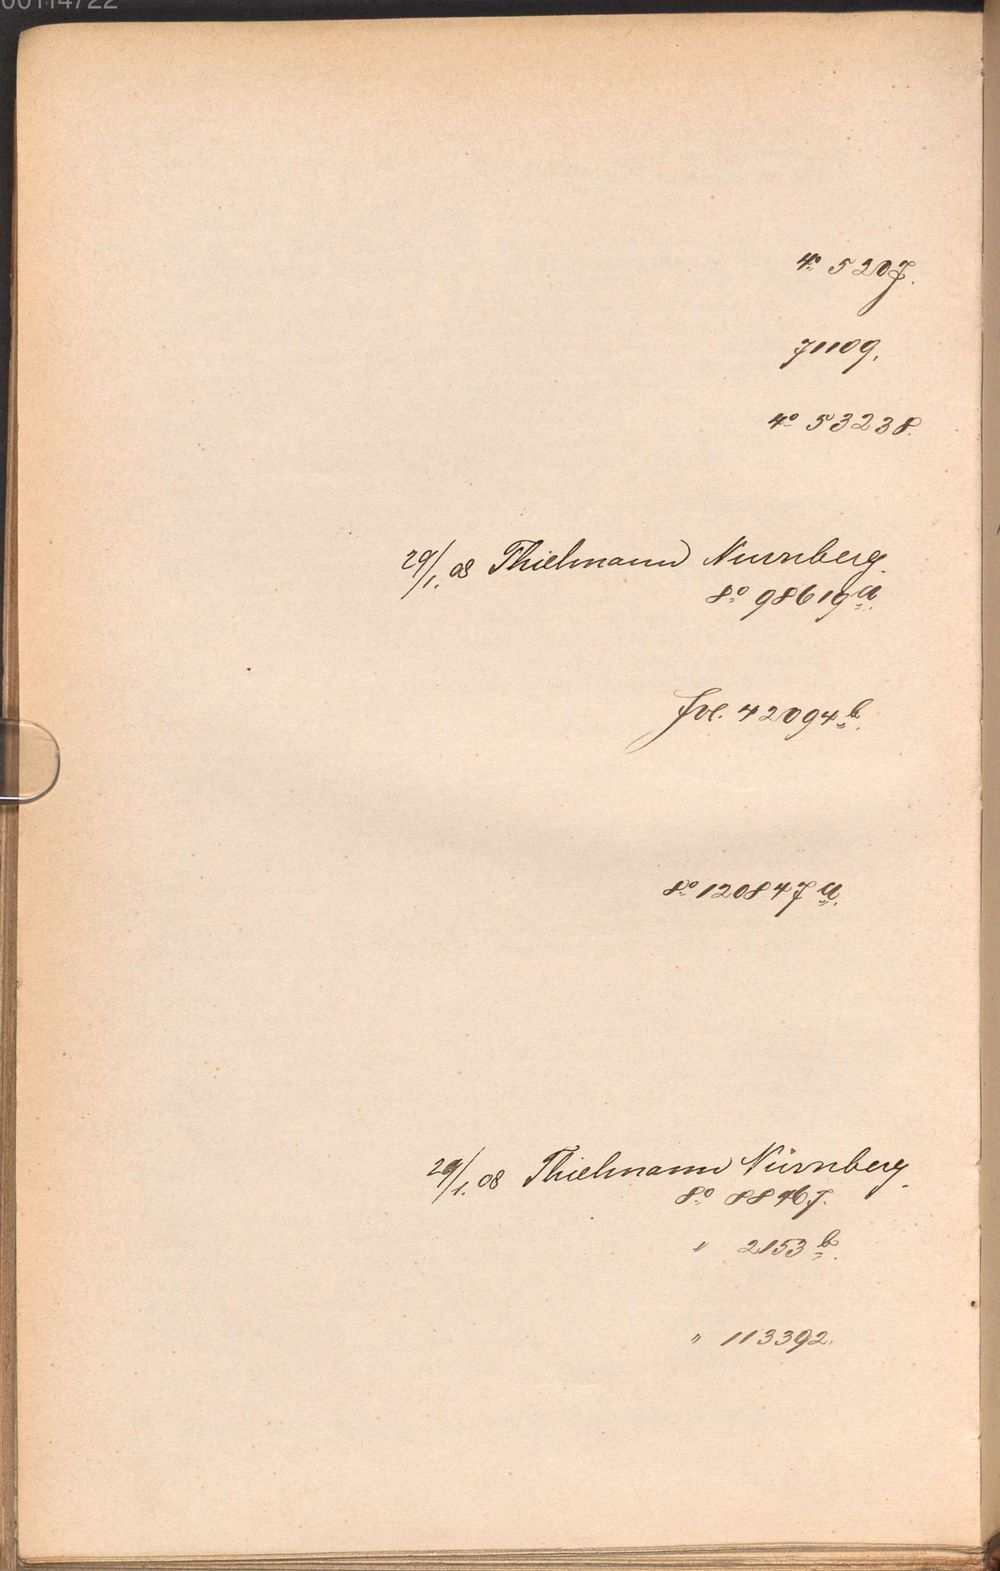 00114722
4° 5207.
71109.
4° 53238.
29/1. 08 Thielmann Nürnberg.
8° 98619 a.
fol. 42094 b.
8° 120847 a.
29/1. 08 Thielmann Nürnberg.
8° 88467.
" 2153 b.
" 113392.